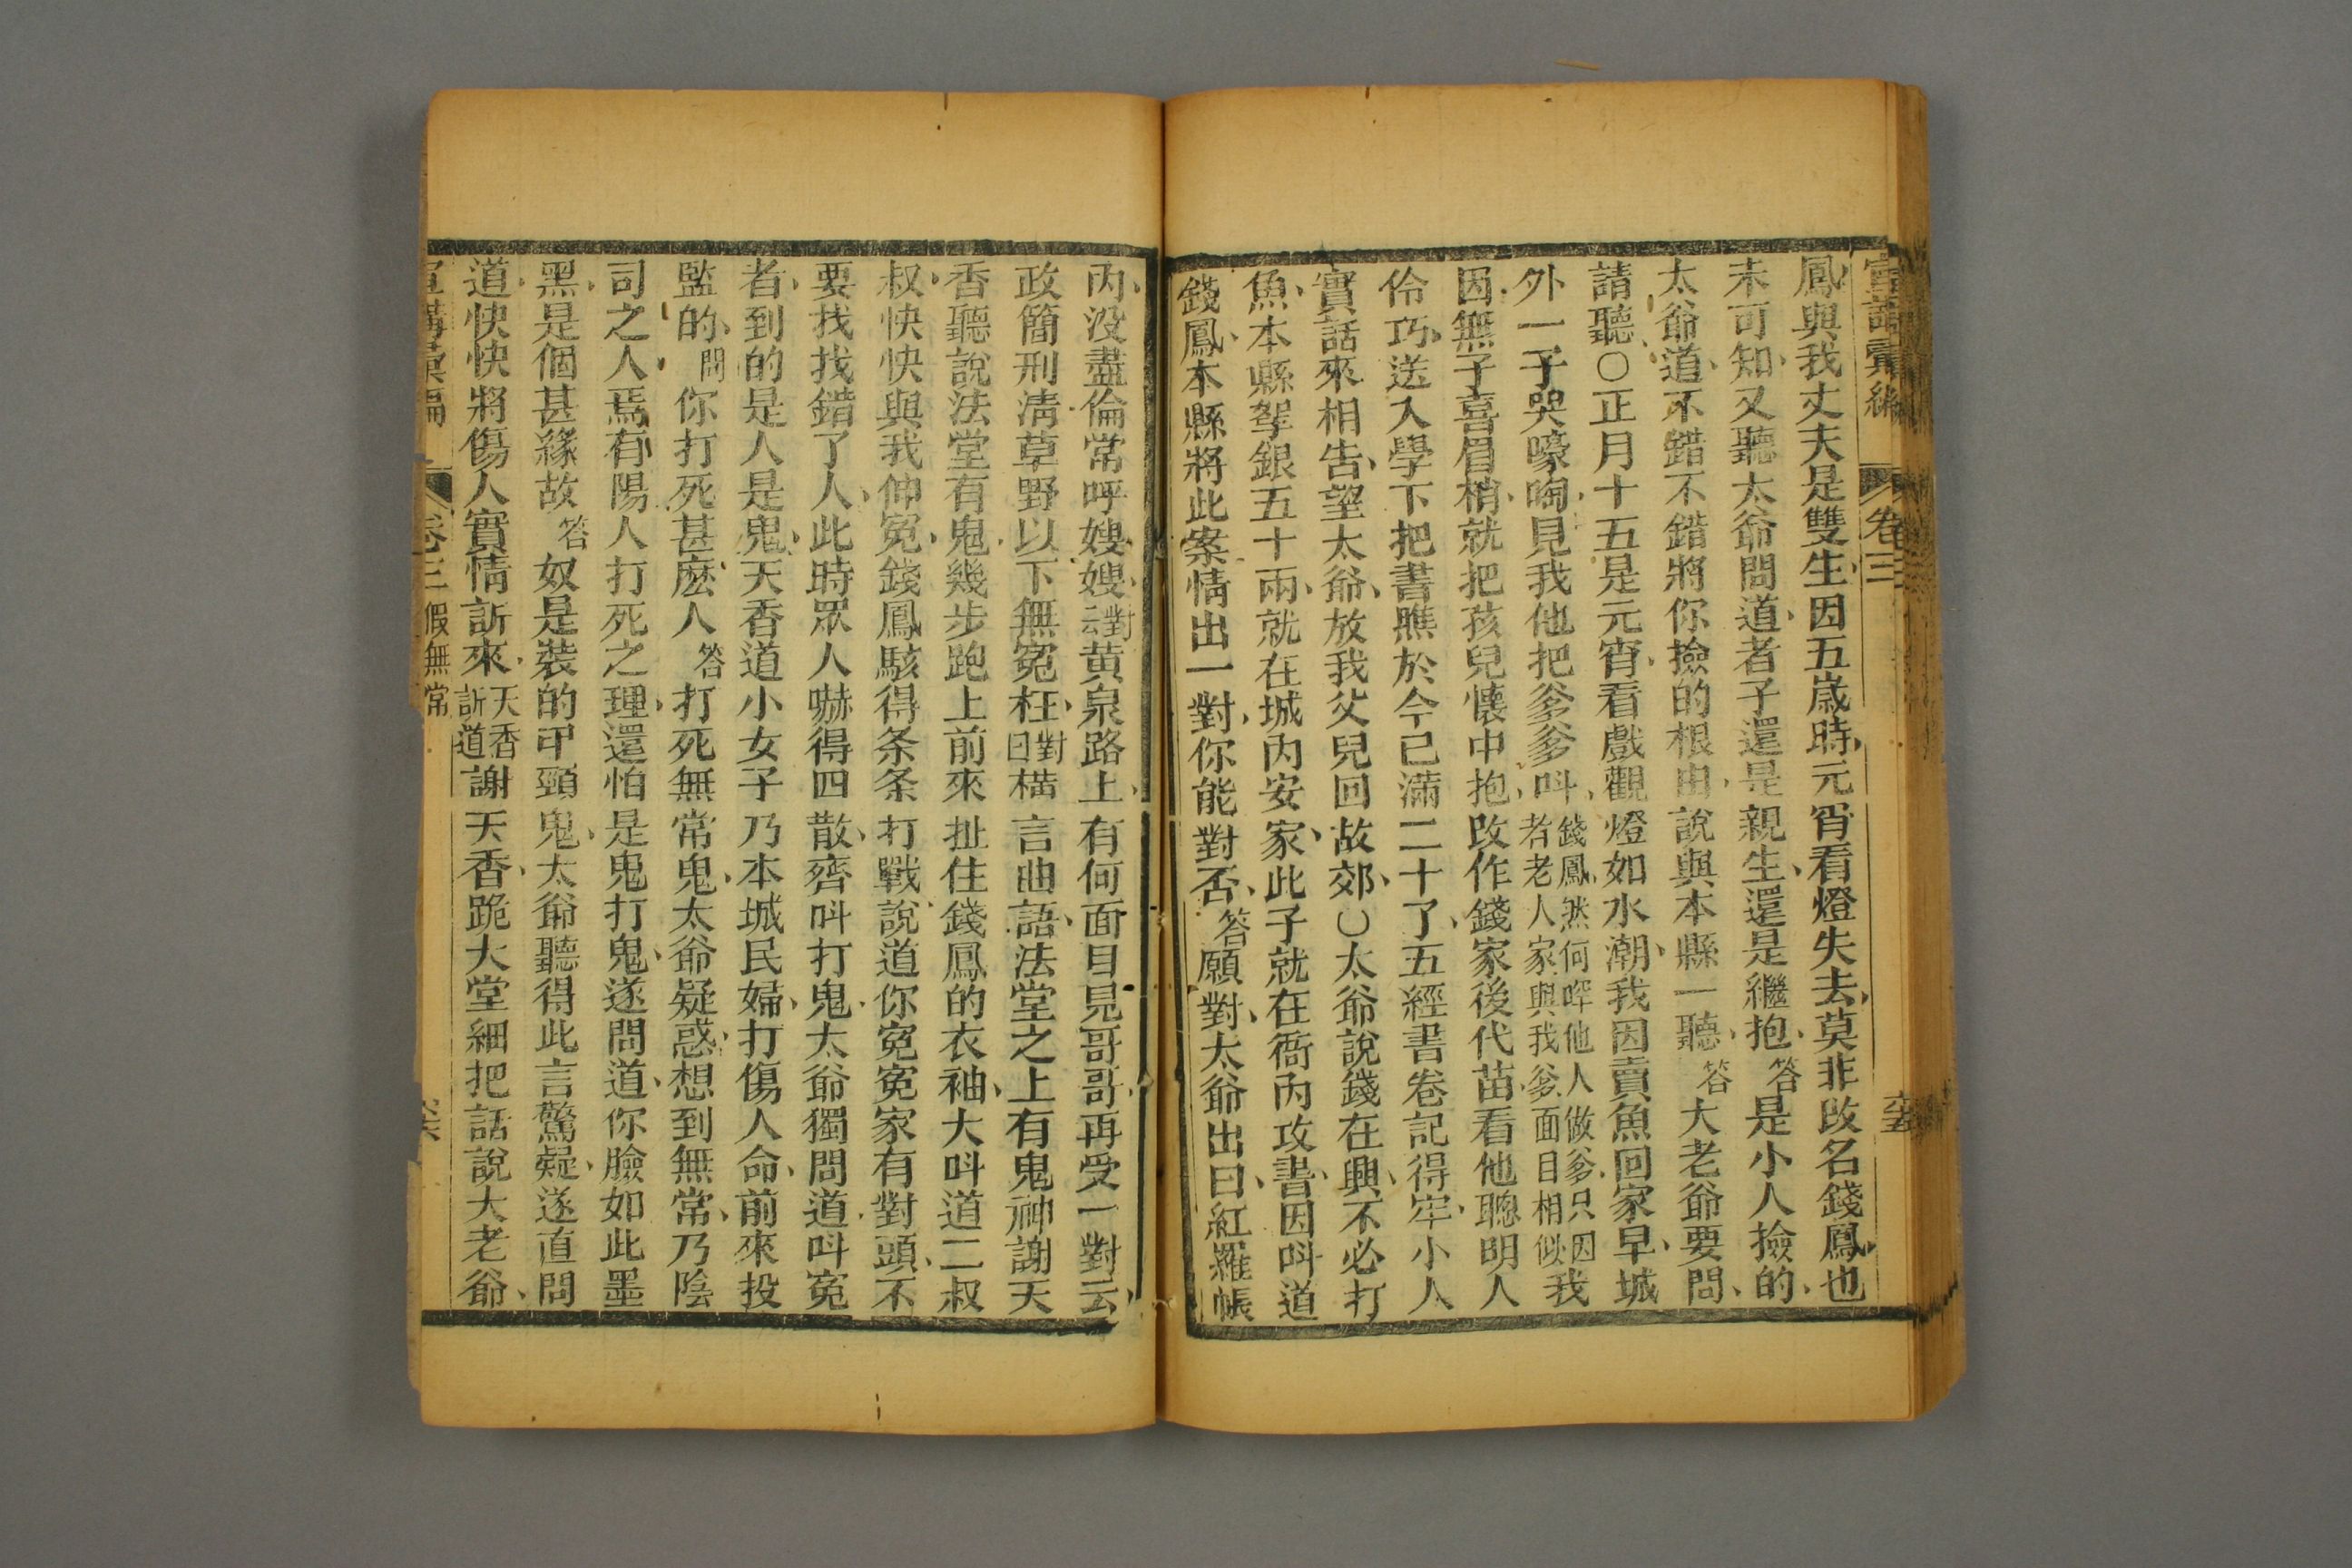 宣講彙編 卷三 六五
鳳與我丈夫是雙生因五歲時元宵看燈失去莫非改名錢鳳也
未可知又聽太爺問道者子還是親生還是繼抱答是小人撿的
太爺道不錯不錯將你撿的根由說與本縣一聽答大老爺要問
請聽○正月十五是元宵看戲觀燈如水潮我因賣魚回家早城
外一子哭嚎啕見我他把爹爹呌錢鳳然何喊他人做爹只因者老人家與我爹面目相似我
因無子喜眉梢就把孩兒懷中抱改作錢家後代苗看他聰明人
伶巧送入學下把書瞧於今已滿二十了五經書卷記得牢小人
實話來相告望太爺放我父兒回故郊○太爺說錢在興不必打
魚本縣拏銀五十兩就在城內安家此子就在衙內攻書因呌道
錢鳳本縣將此案情出一對你能對否答願對太爺出曰紅羅帳
內没盡倫常呼嫂嫂對云黄泉路上有何面目見哥哥再受一對云
政簡刑清草野以下無冤枉對曰橫言曲語法堂之上有鬼神謝天
香聽說法堂有鬼幾步跑上前來扯住錢鳳的衣袖大呌道二叔
叔快快與我伸冤錢鳳駭得条条打戰說道你冤冤家有對頭不
要找找錯了人此時眾人嚇得四散齊呌打鬼太爺獨問道呌冤
者到的是人是鬼天香道小女子乃本城民婦打傷人命前來投
監的問你打死甚麽人答打死無常鬼太爺疑惑想到無常乃陰
司之人焉有陽人打死之理還怕是鬼打鬼遂問道你臉如此墨
黑是個甚緣故答奴是裝的弔頸鬼太爺聽得此言驚疑遂直問
道快快將傷人實情訴來天香訴道謝天香跪大堂細把話說大老爺
宣講彙編 卷三 假無常 六六